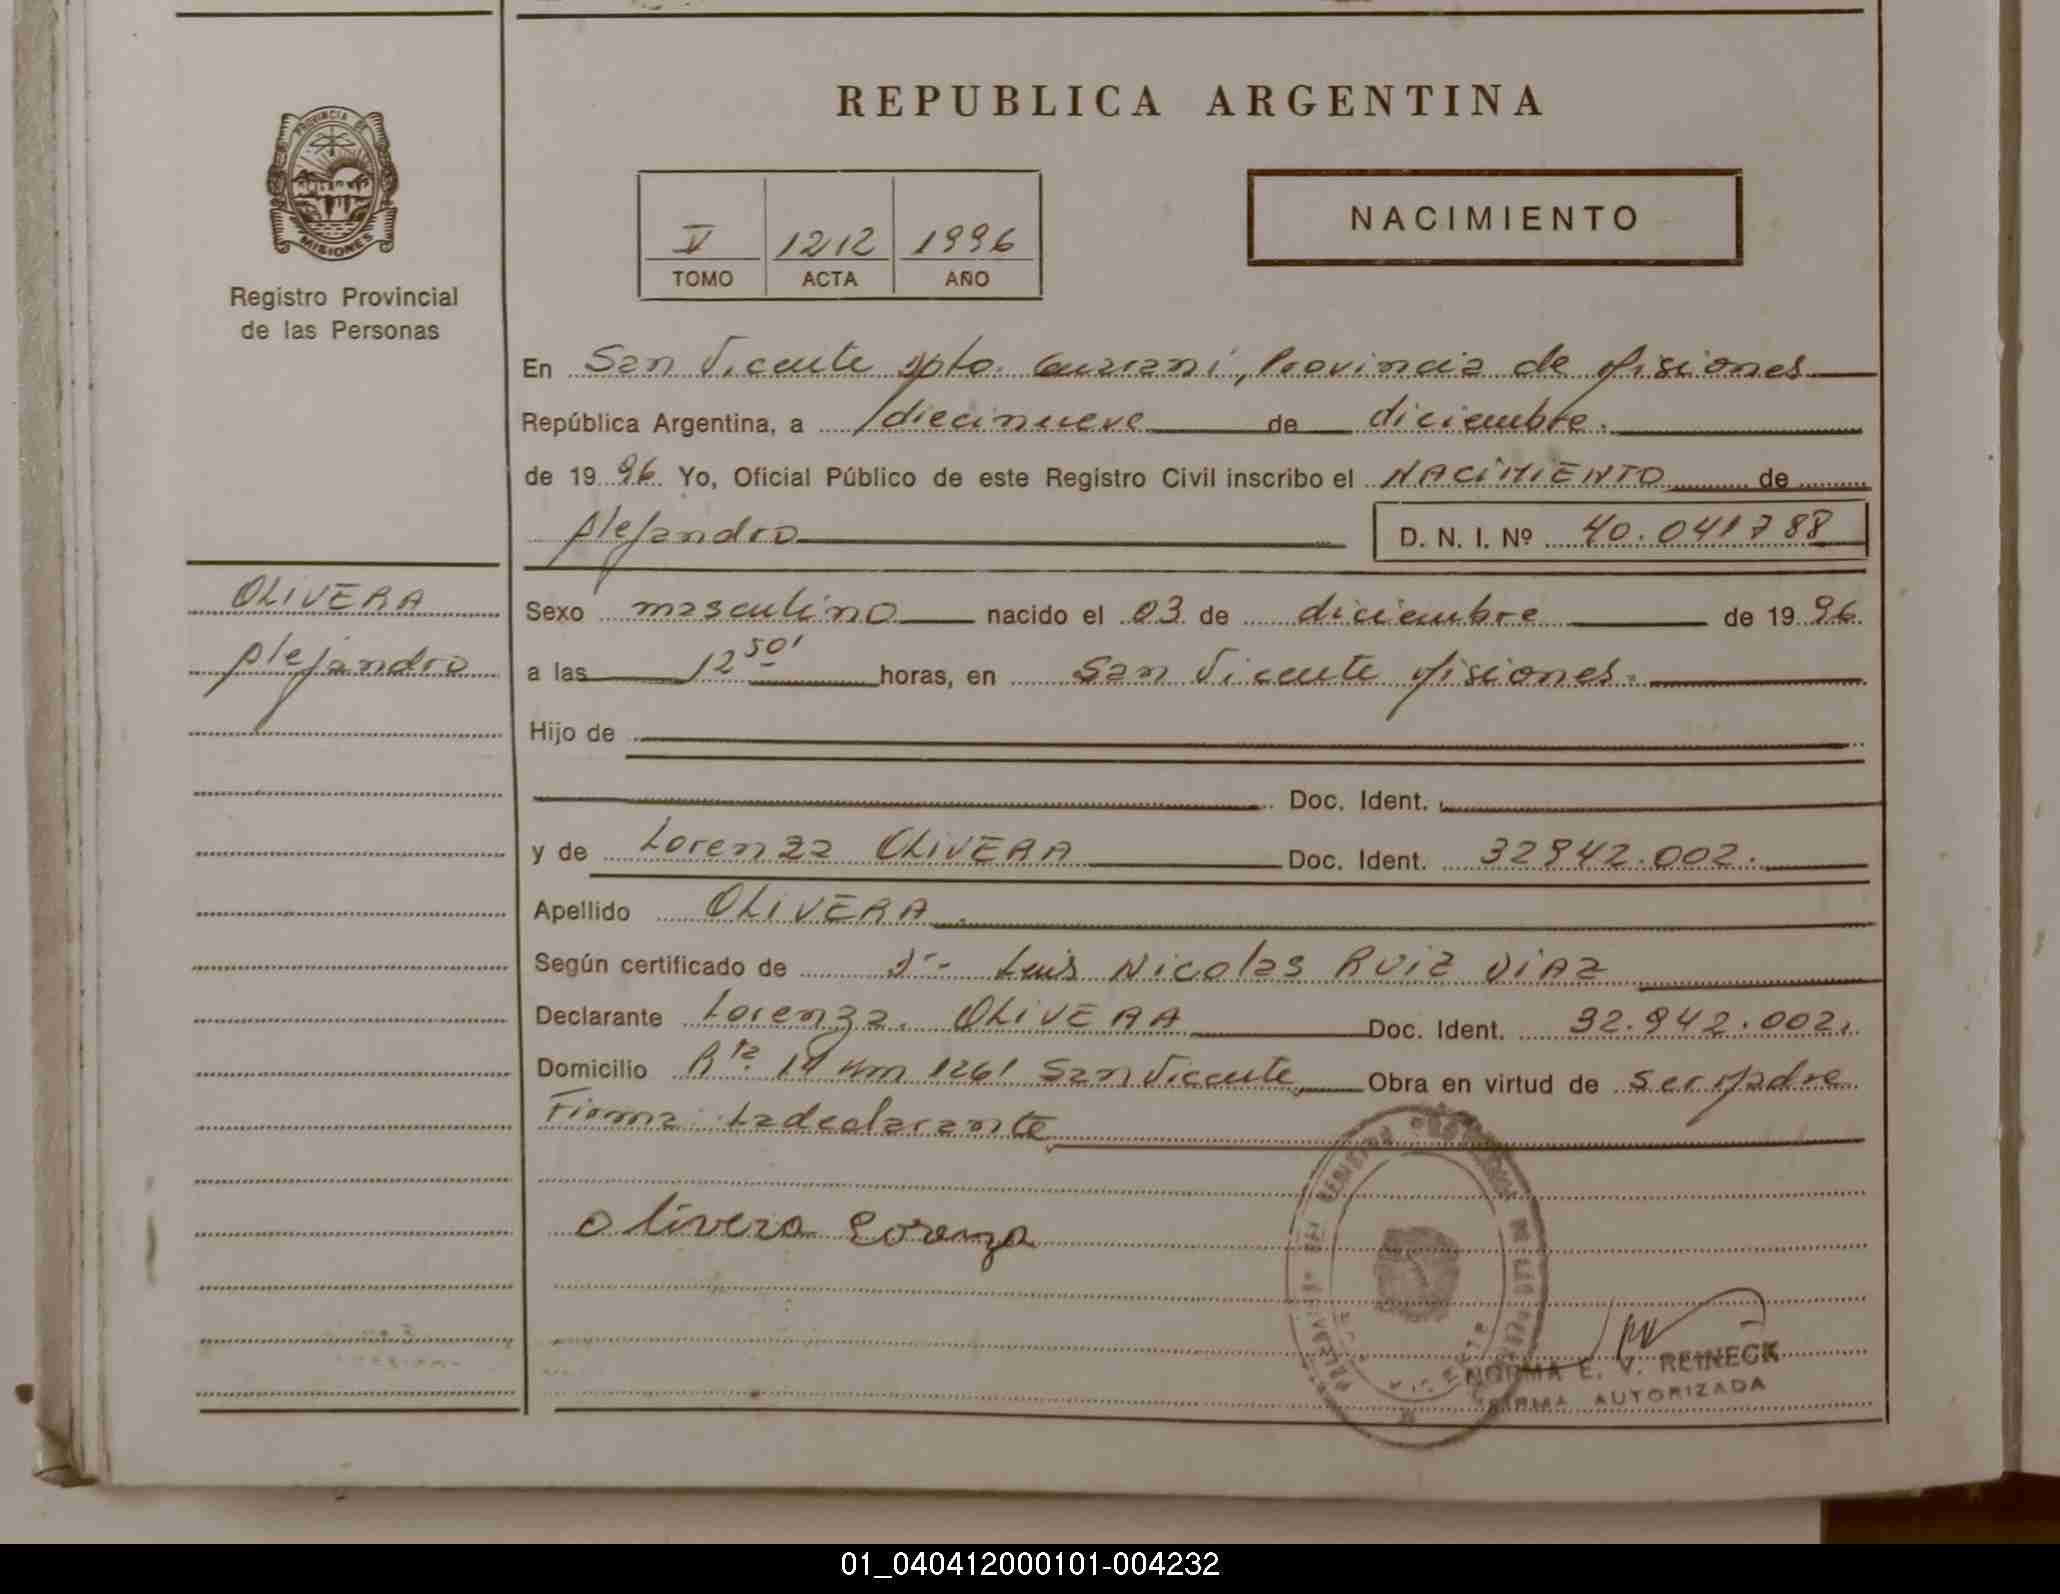 REPUBLICA ARGENTINA
PROVINCIA DE
MISIONES
Registro Provincial
de las Personas
V 1212 1996
TOMO ACTA AÑO
NACIMIENTO
En San Vicente Dpto. Guarani, Provincia de Misiones
República Argentina, a diecinueve de diciembre.
de 1996. Yo, Oficial Público de este Registro Civil inscribo el NACIMIENTO de
Alejandro D. N. I. Nº 40.041788
OLIVERA
Alejandro
Sexo masculino nacido el 03 de diciembre de 1996.
a las 12 50' horas, en San Vicente Misiones.
Hijo de
Doc. Ident.
y de Lorenza OLIVERA Doc. Ident. 32942.002.
Apellido OLIVERA.
Según certificado de Dr- Luis Nicolas RUIZ DIAZ
Declarante Lorenza. OLIVERA Doc. Ident. 32.942.002.
Domicilio Rta. 14 Km 1261 San Vicente Obra en virtud de ser Madre
Firma: La declarante
Olivera Lorenza
NORMA E. V. REINECK
FIRMA AUTORIZADA
01_040412000101-004232